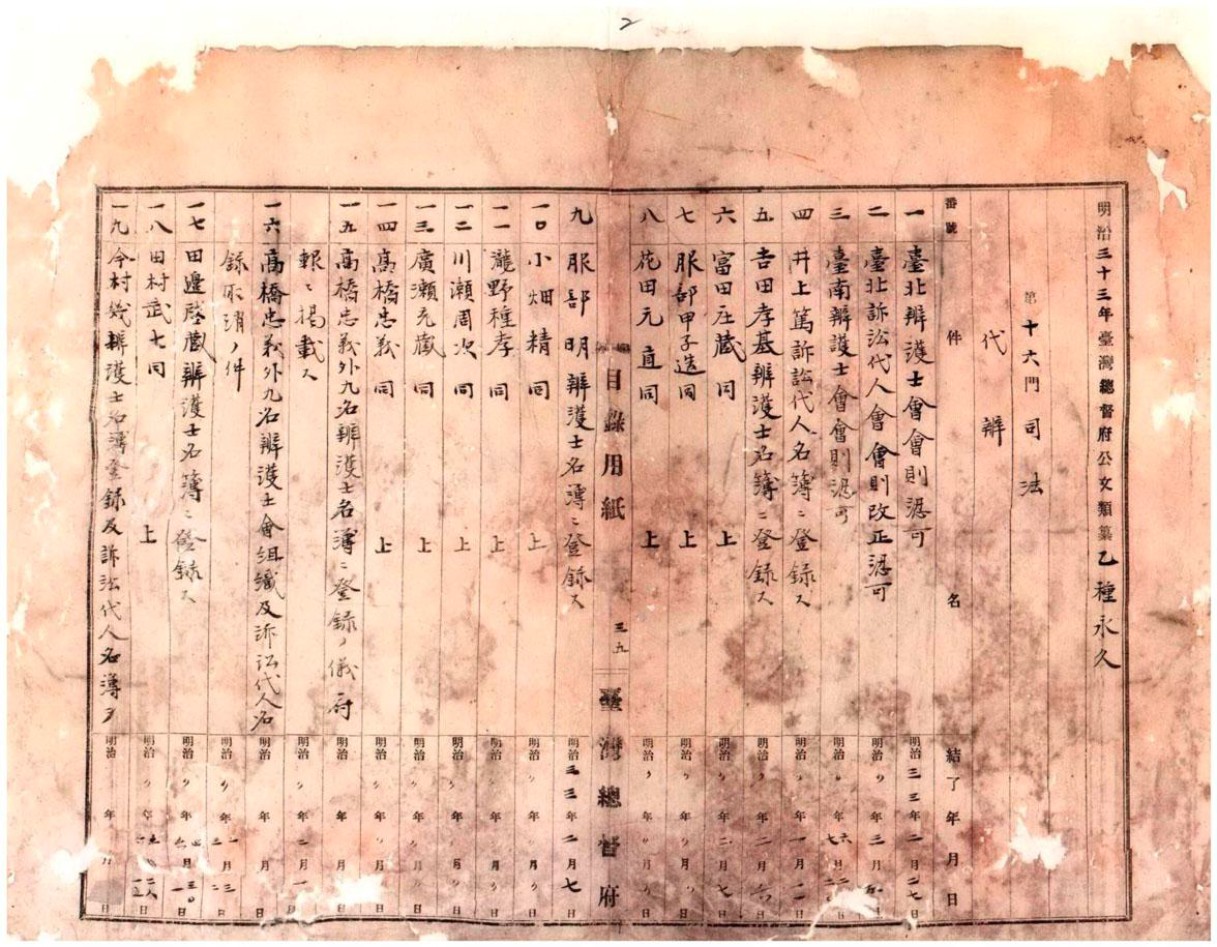 2
明治三十三年臺灣總督府公文類纂乙種永久
第十六門司法
代辦
番號 件名 結了年月日
一 臺北辨護士會會則認可 明治三三年二月二七日
二 臺北訴訟代人會會則改正認可 明治〃年三月 日
三 臺南辨護士會會則認可 明治〃年 月 日
四 井上篤訴訟代人名簿ニ登錄ス 明治〃年一月一一日
五 吉田孝基辨護士名簿ニ登錄ス 明治〃年二月六日
六 富田庄藏同上 明治〃年二月七日
七 服部甲子造同上 明治〃年〃月〃日
八 花田元直同上 明治〃年〃月〃日
目錄用紙 三五 臺灣總督府
九 服部明辨護士名簿ニ登錄ス 明治三三年二月七日
一〇 小畑精同上 明治〃年〃月〃日
一一 瀧野種孝同上 明治〃年〃月〃日
一二 川瀨周次同上 明治〃年〃月〃日
一三 廣瀨充藏同上 明治〃年〃月〃日
一四 高橋忠義同上 明治〃年〃月〃日
一五 高橋忠義外九名辨護士名簿ニ登錄ノ儀府 明治 年 月 日
報ニ揭載ス 明治〃年二月一 日
一六 高橋忠義外九名辨護士會組織及訴訟代人名 明治 年 月 日
錄取消ノ件 明治〃年 月 日
一七 田邊啓藏辨護士名簿ニ登錄ス 明治〃年 月 日
一八 田村武七同上 明治〃年 月 日
一九 今村幾辨護士名簿登錄及訴訟代人名簿ヲ 明治 年 月 日